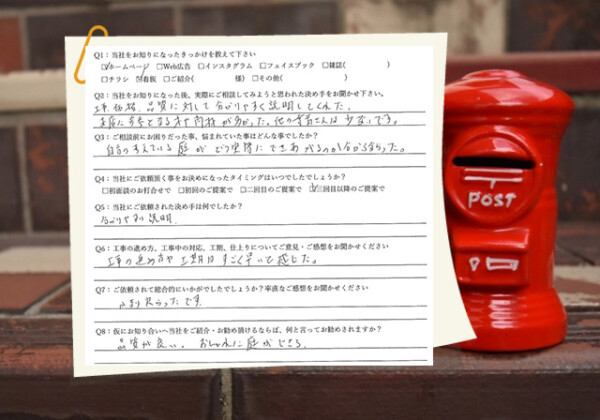 Q1：当社をお知りになったきっかけを教えて下さい
☑ホームページ □Web広告 □インスタグラム □フェイスブック □雑誌( )
□チラシ ☑看板 □ご紹介( 様) □その他( )
Q2：当社をお知りになった後、実際にご相談してみようと思われた決め手をお聞かせ下さい。
工事、価格、品質に対して分かりやすく説明してくれた。
参考となる 材が多かった。他の業者さんは少ないです。
Q3：ご相談前にお困りだった事、悩まれていた事はどんな事でしたか？
自分の考えている庭がどう実際にできあがるのか分からなかった。
Q4：当社にご依頼頂く事をお決めになったタイミングはいつでしたでしょうか？
□初面談のお打合せで □初回のご提案で □二回目のご提案で ☑三回目以降のご提案で
Q5：当社にご依頼された決め手は何でしたか？
分かりやすい説明
Q6：工事の進め方、工事中の対応、工期、仕上りについてご意見・ご感想をお聞かせください
工事の進め方や工期はすごく早いと感じた。
Q7：ご依頼されて総合的にいかがでしたでしょうか？率直なご感想をお聞かせください
良かったです
Q8：仮にお知り合いへ当社をご紹介・お勧め頂けるならば、何と言ってお勧めされますか？
品質が良い、おしゃれに庭ができる。
POST